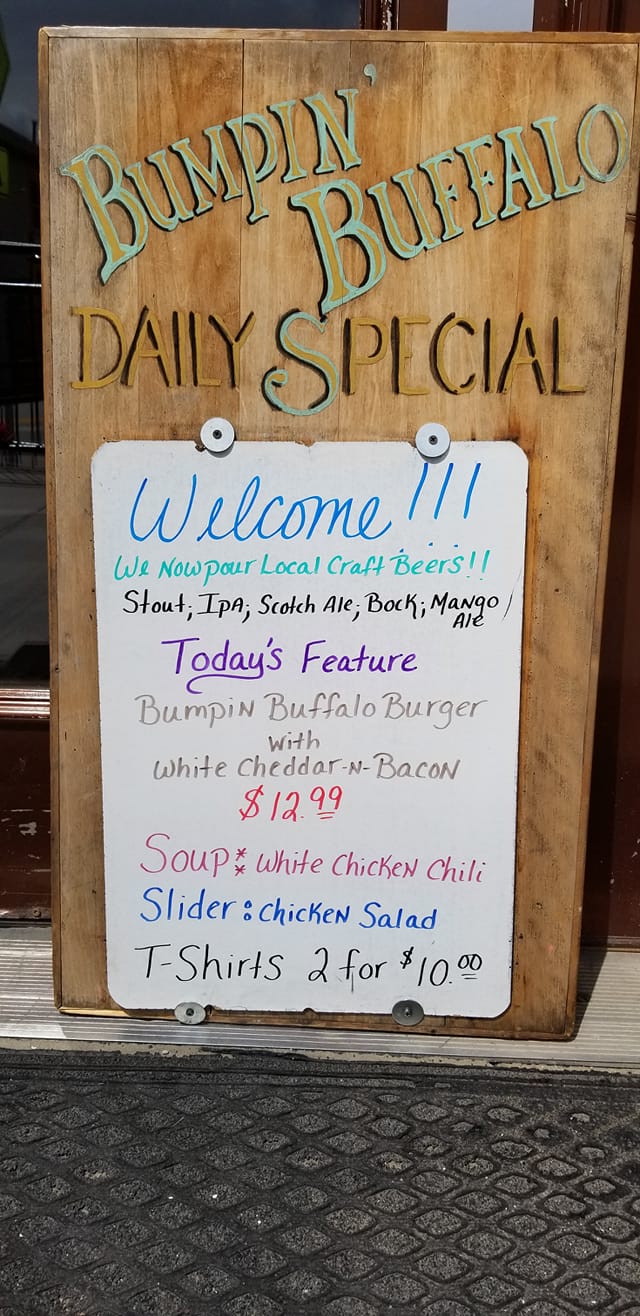 Bumpin'
Buffalo
Daily Special
Welcome!!!
We Now pour Local Craft Beers!!
Stout; IPA; Scotch Ale; Bock; Mango
Ale
Today's Feature
Bumpin Buffalo Burger
with
White Cheddar-N-Bacon
$12.99
Soup: White Chicken Chili
Slider: Chicken Salad
T-Shirts 2 for $10.00